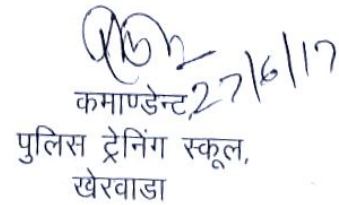 27/6/17
कमाण्डेन्ट,
पुलिस ट्रेनिंग स्कूल,
खेरवाडा